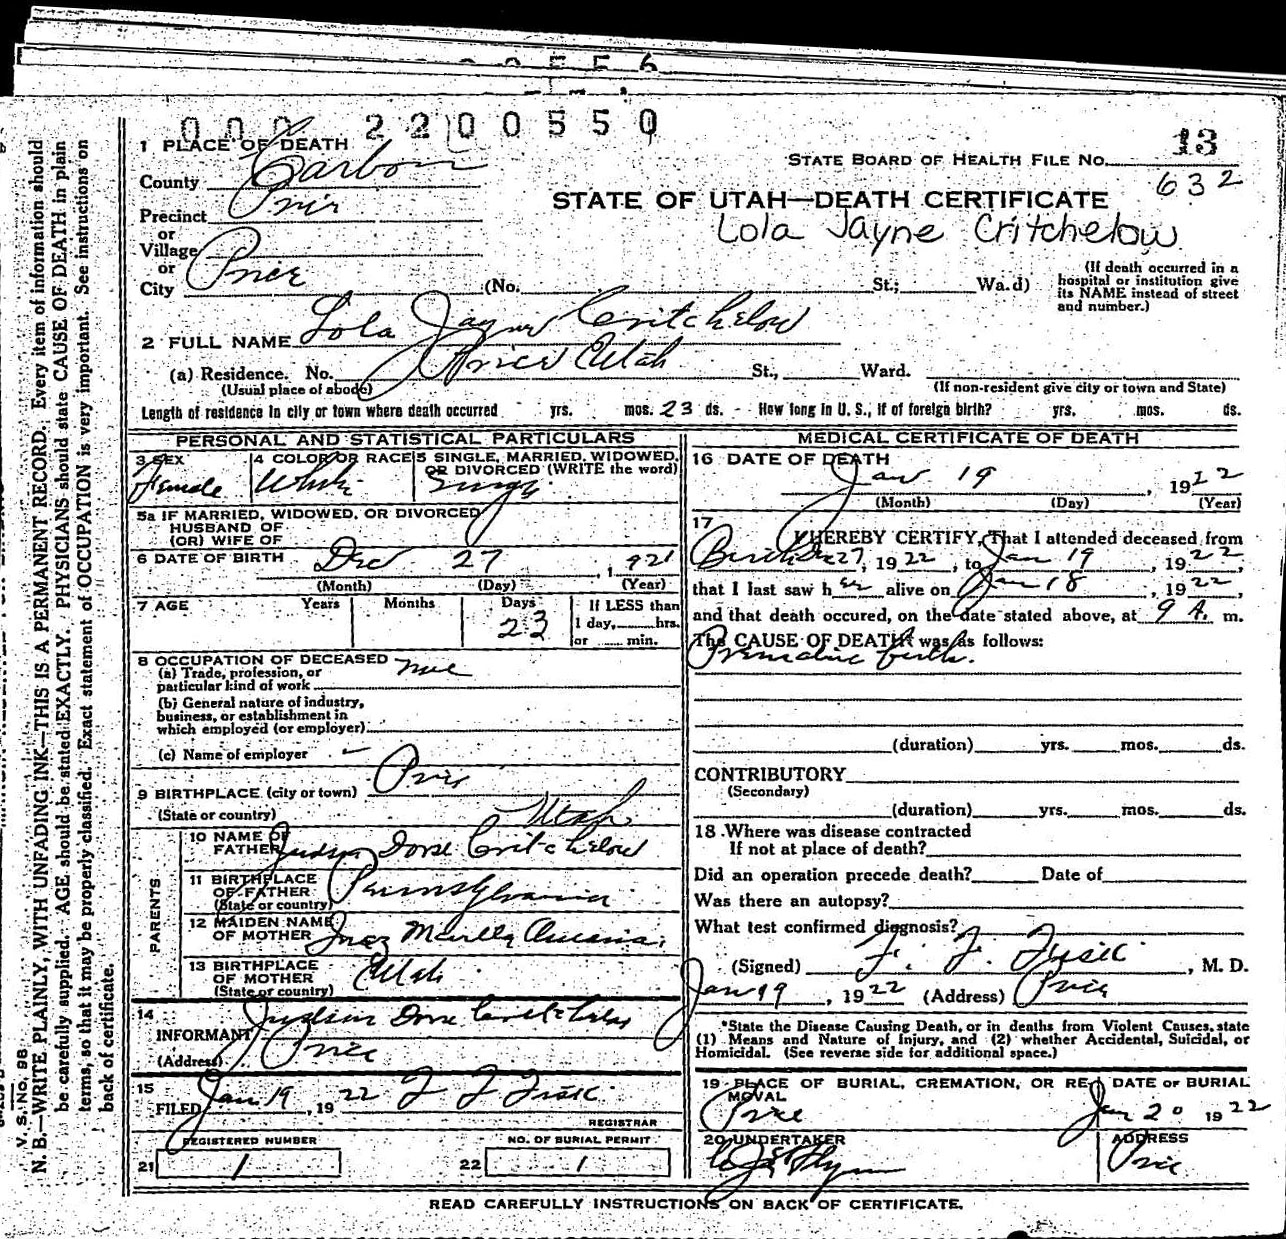 000 2200550
1 PLACE OF DEATH
STATE BOARD OF HEALTH FILE No. 13
County Carbon
632
STATE OF UTAH—DEATH CERTIFICATE
Precinct Price
Lola Jayne Critchelow
or
Village
or
City Price (No. St.; Wa.d)
(If death occurred in a hospital or institution give its NAME instead of street and number.)
2 FULL NAME Lola Jayne Critchelow
(a) Residence. No. Price Utah St., Ward.
(Usual place of abode) (If non-resident give city or town and State)
Length of residence in city or town where death occurred yrs. mos. 23 ds. How long in U. S., if of foreign birth? yrs. mos. ds.
PERSONAL AND STATISTICAL PARTICULARS
3 SEX Female
4 COLOR OR RACE White
5 SINGLE, MARRIED, WIDOWED, OR DIVORCED (WRITE the word)
5a IF MARRIED, WIDOWED, OR DIVORCED
HUSBAND OF
(OR) WIFE OF
6 DATE OF BIRTH Dec 27, 1921
(Month) (Day) (Year)
7 AGE Years Months Days If LESS than
23 1 day, hrs.
or min.
8 OCCUPATION OF DECEASED
(a) Trade, profession, or
particular kind of work
(b) General nature of industry,
business, or establishment in
which employed (or employer)
(c) Name of employer
9 BIRTHPLACE (city or town) Price
(State or country) Utah
PARENTS
10 NAME OF FATHER Judson Dorse Critchelow
11 BIRTHPLACE OF FATHER Pennsylvania
(State or country)
12 MAIDEN NAME OF MOTHER Inez
13 BIRTHPLACE OF MOTHER Utah
(State or country)
14
INFORMANT Judson Dorse Critchelow
(Address) Price
15
FILED Jan 19, 1922
REGISTRAR
REGISTERED NUMBER NO. OF BURIAL PERMIT
21 1 22 1
MEDICAL CERTIFICATE OF DEATH
16 DATE OF DEATH
Jan 19, 1922
(Month) (Day) (Year)
17
I HEREBY CERTIFY, That I attended deceased from
27, 1922, to Jan 19, 1922,
that I last saw her alive on Jan 18, 1922,
and that death occured, on the date stated above, at 9 A. m.
The CAUSE OF DEATH was as follows:
birth.
(duration) yrs. mos. ds.
CONTRIBUTORY
(Secondary)
(duration) yrs. mos. ds.
18 Where was disease contracted
If not at place of death?
Did an operation precede death? Date of
Was there an autopsy?
What test confirmed diagnosis?
(Signed) , M. D.
Jan 19, 1922 (Address) Price
*State the Disease Causing Death, or in deaths from Violent Causes, state
(1) Means and Nature of Injury, and (2) whether Accidental, Suicidal, or
Homicidal. (See reverse side for additional space.)
19 PLACE OF BURIAL, CREMATION, OR REMOVAL DATE OF BURIAL
Price Jan 20 1922
20 UNDERTAKER ADDRESS
Price
READ CAREFULLY INSTRUCTIONS ON BACK OF CERTIFICATE.
V. S. No. 98
N. B.—WRITE PLAINLY, WITH UNFADING INK—THIS IS A PERMANENT RECORD. Every item of information should
be carefully supplied. AGE should be stated EXACTLY. PHYSICIANS should state CAUSE OF DEATH in plain
terms, so that it may be properly classified. Exact statement of OCCUPATION is very important. See instructions on
back of certificate.